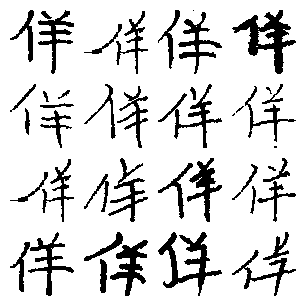 佯佯佯佯
佯佯佯佯
佯佯佯佯
佯佯佯佯